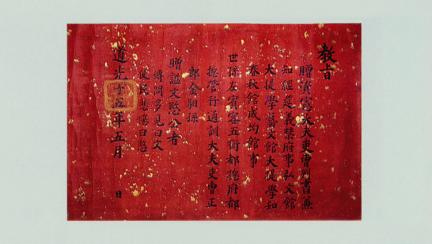 敎旨
贈資憲大夫吏曹判書兼
知經筵義禁府事弘文館
大提學藝文館大提學知
春秋館成均館事
世孫左賓客五衛都摠府都
摠管行通訓大夫吏曹正
郎金馹孫
贈諡文愍公者
博聞多見曰文
使民悲傷曰愍
道光十五年五月 日